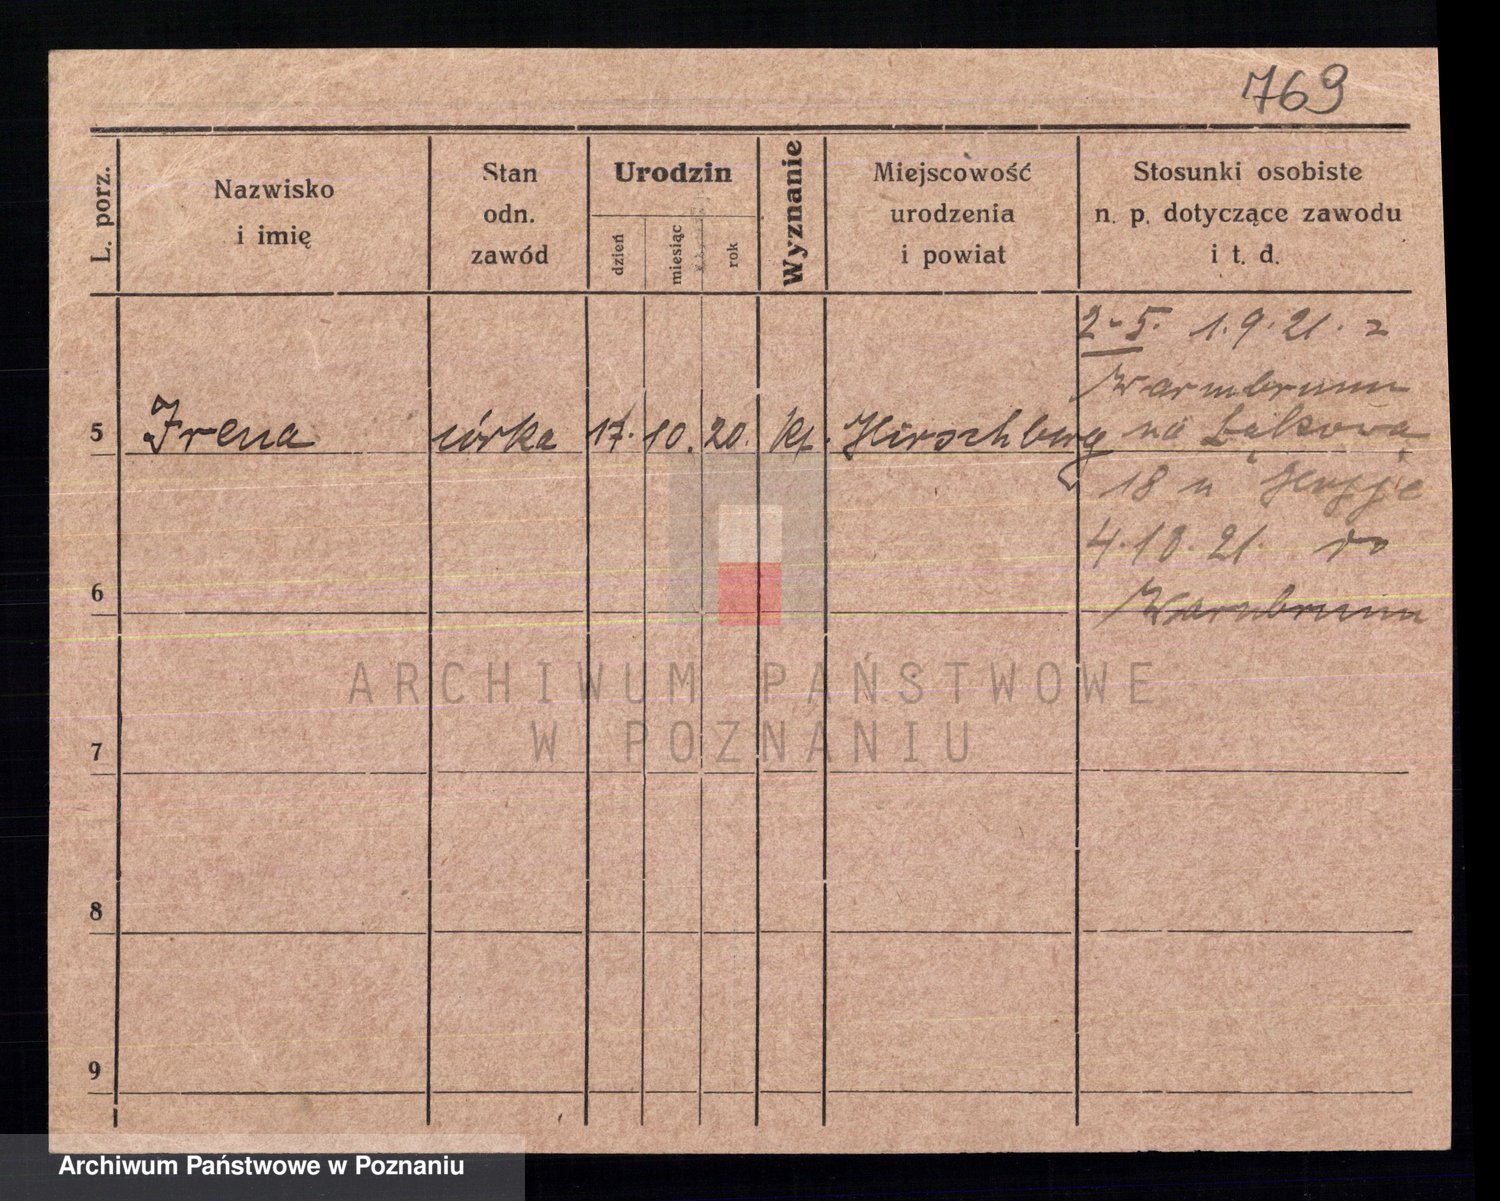 769
L. porz.
Nazwisko
i imię
Stan
odn.
zawód
Urodzin
dzień
miesiąc
rok
Wyznanie
Miejscowość
urodzenia
i powiat
Stosunki osobiste
n. p. dotyczące zawodu
i t. d.
2-5. 1.9.21. z
Warmbrunn
5 Irena córka 17. 10. 20. kt. Hirschberg na Łąkową
18 u
4.10.21. do
6 Warmbrunn
ARCHIWUM PAŃSTWOWE
W POZNANIU
7
8
9
Archiwum Państwowe w Poznaniu